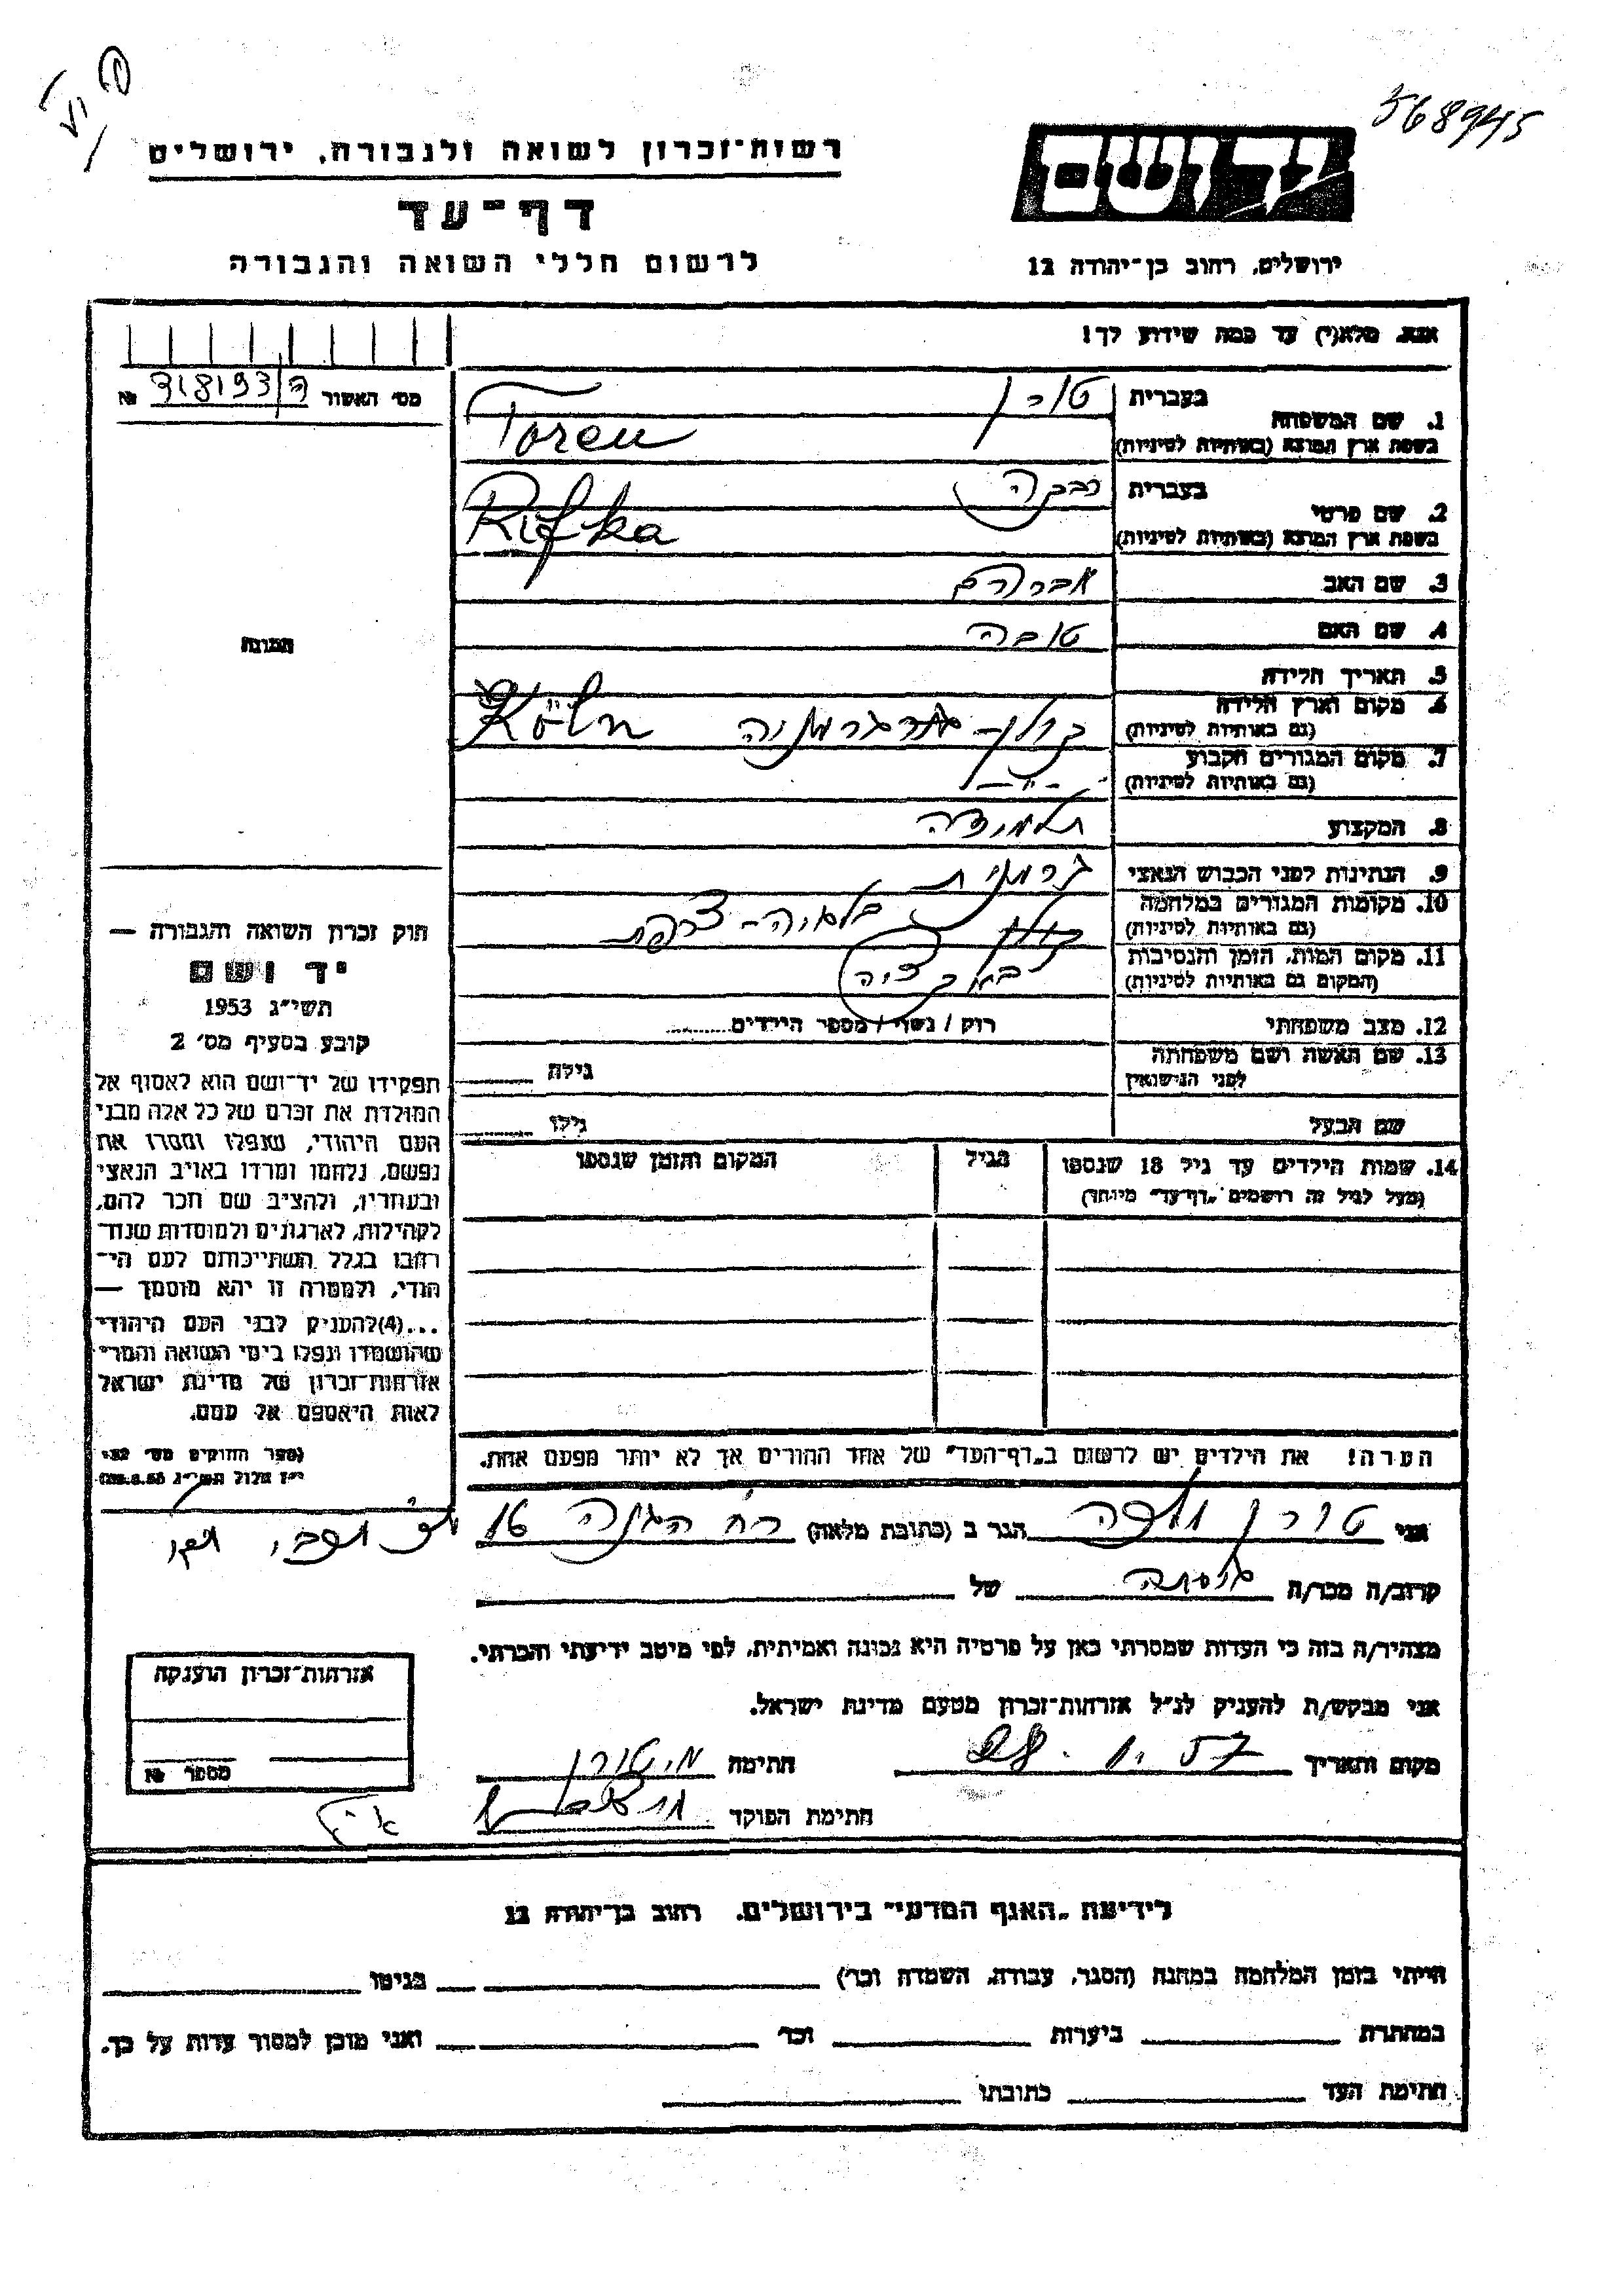 568945
רשות־זכרון לשואה ולגבורה, ירושלים
יד ושם
דף־עד
לרשום חללי השואה והגבורה
ירושלים, רחוב בן־יהודה 12
אנא, מלא(י) עד כמה שידוע לך!
מס׳ האשור №
בעברית טורן
1. שם המשפחה
בשפת ארץ המוצא (באותיות לטיניות) Toren
בעברית רבקה
2. שם פרטי
בשפת ארץ המוצא (באותיות לטיניות) Rifka
3. שם האב אברהם
4. שם האם טובה
תמונה
5. תאריך הלידה
6. מקום וארץ הלידה
(גם באותיות לטיניות) קולן - גרמניה Köln
7. מקום המגורים הקבוע
(גם באותיות לטיניות) - " -
8. המקצוע תלמידה
9. הנתינות לפני הכבוש הנאצי גרמנית
10. מקומות המגורים במלחמה
(גם באותיות לטיניות) קולן בלגיה - צרפת
11. מקום המות, הזמן והנסיבות
(המקום גם באותיות לטיניות)
12. מצב משפחתי רוק / נשוי / מספר הילדים
13. שם האשה ושם משפחתה
לפני הנישואין גילה
שם הבעל גילו
14. שמות הילדים עד גיל 18 שנספו הגיל המקום והזמן שנספו
(מעל לגיל זה רושמים „דף־עד״ מיוחד)
חוק זכרון השואה והגבורה —
יד ושם
תשי״ג 1953
קובע בסעיף מס׳ 2
תפקידו של יד־ושם הוא לאסוף אל
המולדת את זכרם של כל אלה מבני
העם היהודי, שנפלו ומסרו את
נפשם, נלחמו ומרדו באויב הנאצי
ובעוזריו, ולהציב שם וזכר להם,
לקהילות, לארגונים ולמוסדות שנח־
רבו בגלל השתייכותם לעם הי־
הודי, ולמטרה זו יהא מוסמך —
...(4) להעניק לבני העם היהודי
שהושמדו ונפלו בימי השואה והמרי
אזרחות־זכרון של מדינת ישראל
לאות היאספם אל עמם.
(ספר החוקים מס׳ 132,
י״ז אלול תשי״ג 28.8.53)
הערה! את הילדים יש לרשום ב„דף־העד״ של אחד ההורים אך לא יותר מפעם אחת.
אני טורן הגר ב (כתובת מלאה) רח הגנה 16
קרוב/ה מכר/ה של
מצהיר/ה בזה כי העדות שמסרתי כאן על פרטיה היא נכונה ואמיתית, לפי מיטב ידיעתי והכרתי.
אני מבקש/ת להעניק לנ״ל אזרחות־זכרון מטעם מדינת ישראל.
מקום ותאריך 28.1.57 חתימה מ. טורן
חתימת הפוקד
אזרחות־זכרון הוענקה
מספר №
לידיעת „האגף המדעי״ בירושלים, רחוב בן־יהודה 12
הייתי בזמן המלחמה במחנה (הסגר, עבודה, השמדה וכו׳) בגיטו
במחתרת ביערות וכו׳ ואני מוכן למסור עדות על כך.
חתימת העד כתובתו